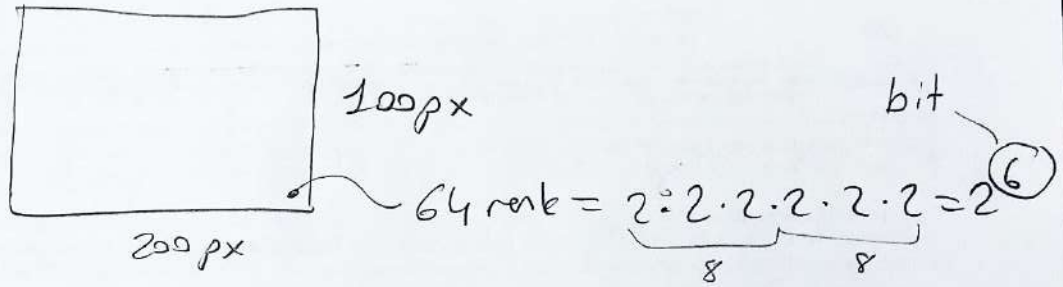 100px
bit
64 renk = 2·2·2·2·2·2 = 2⁶
8 8
200 px